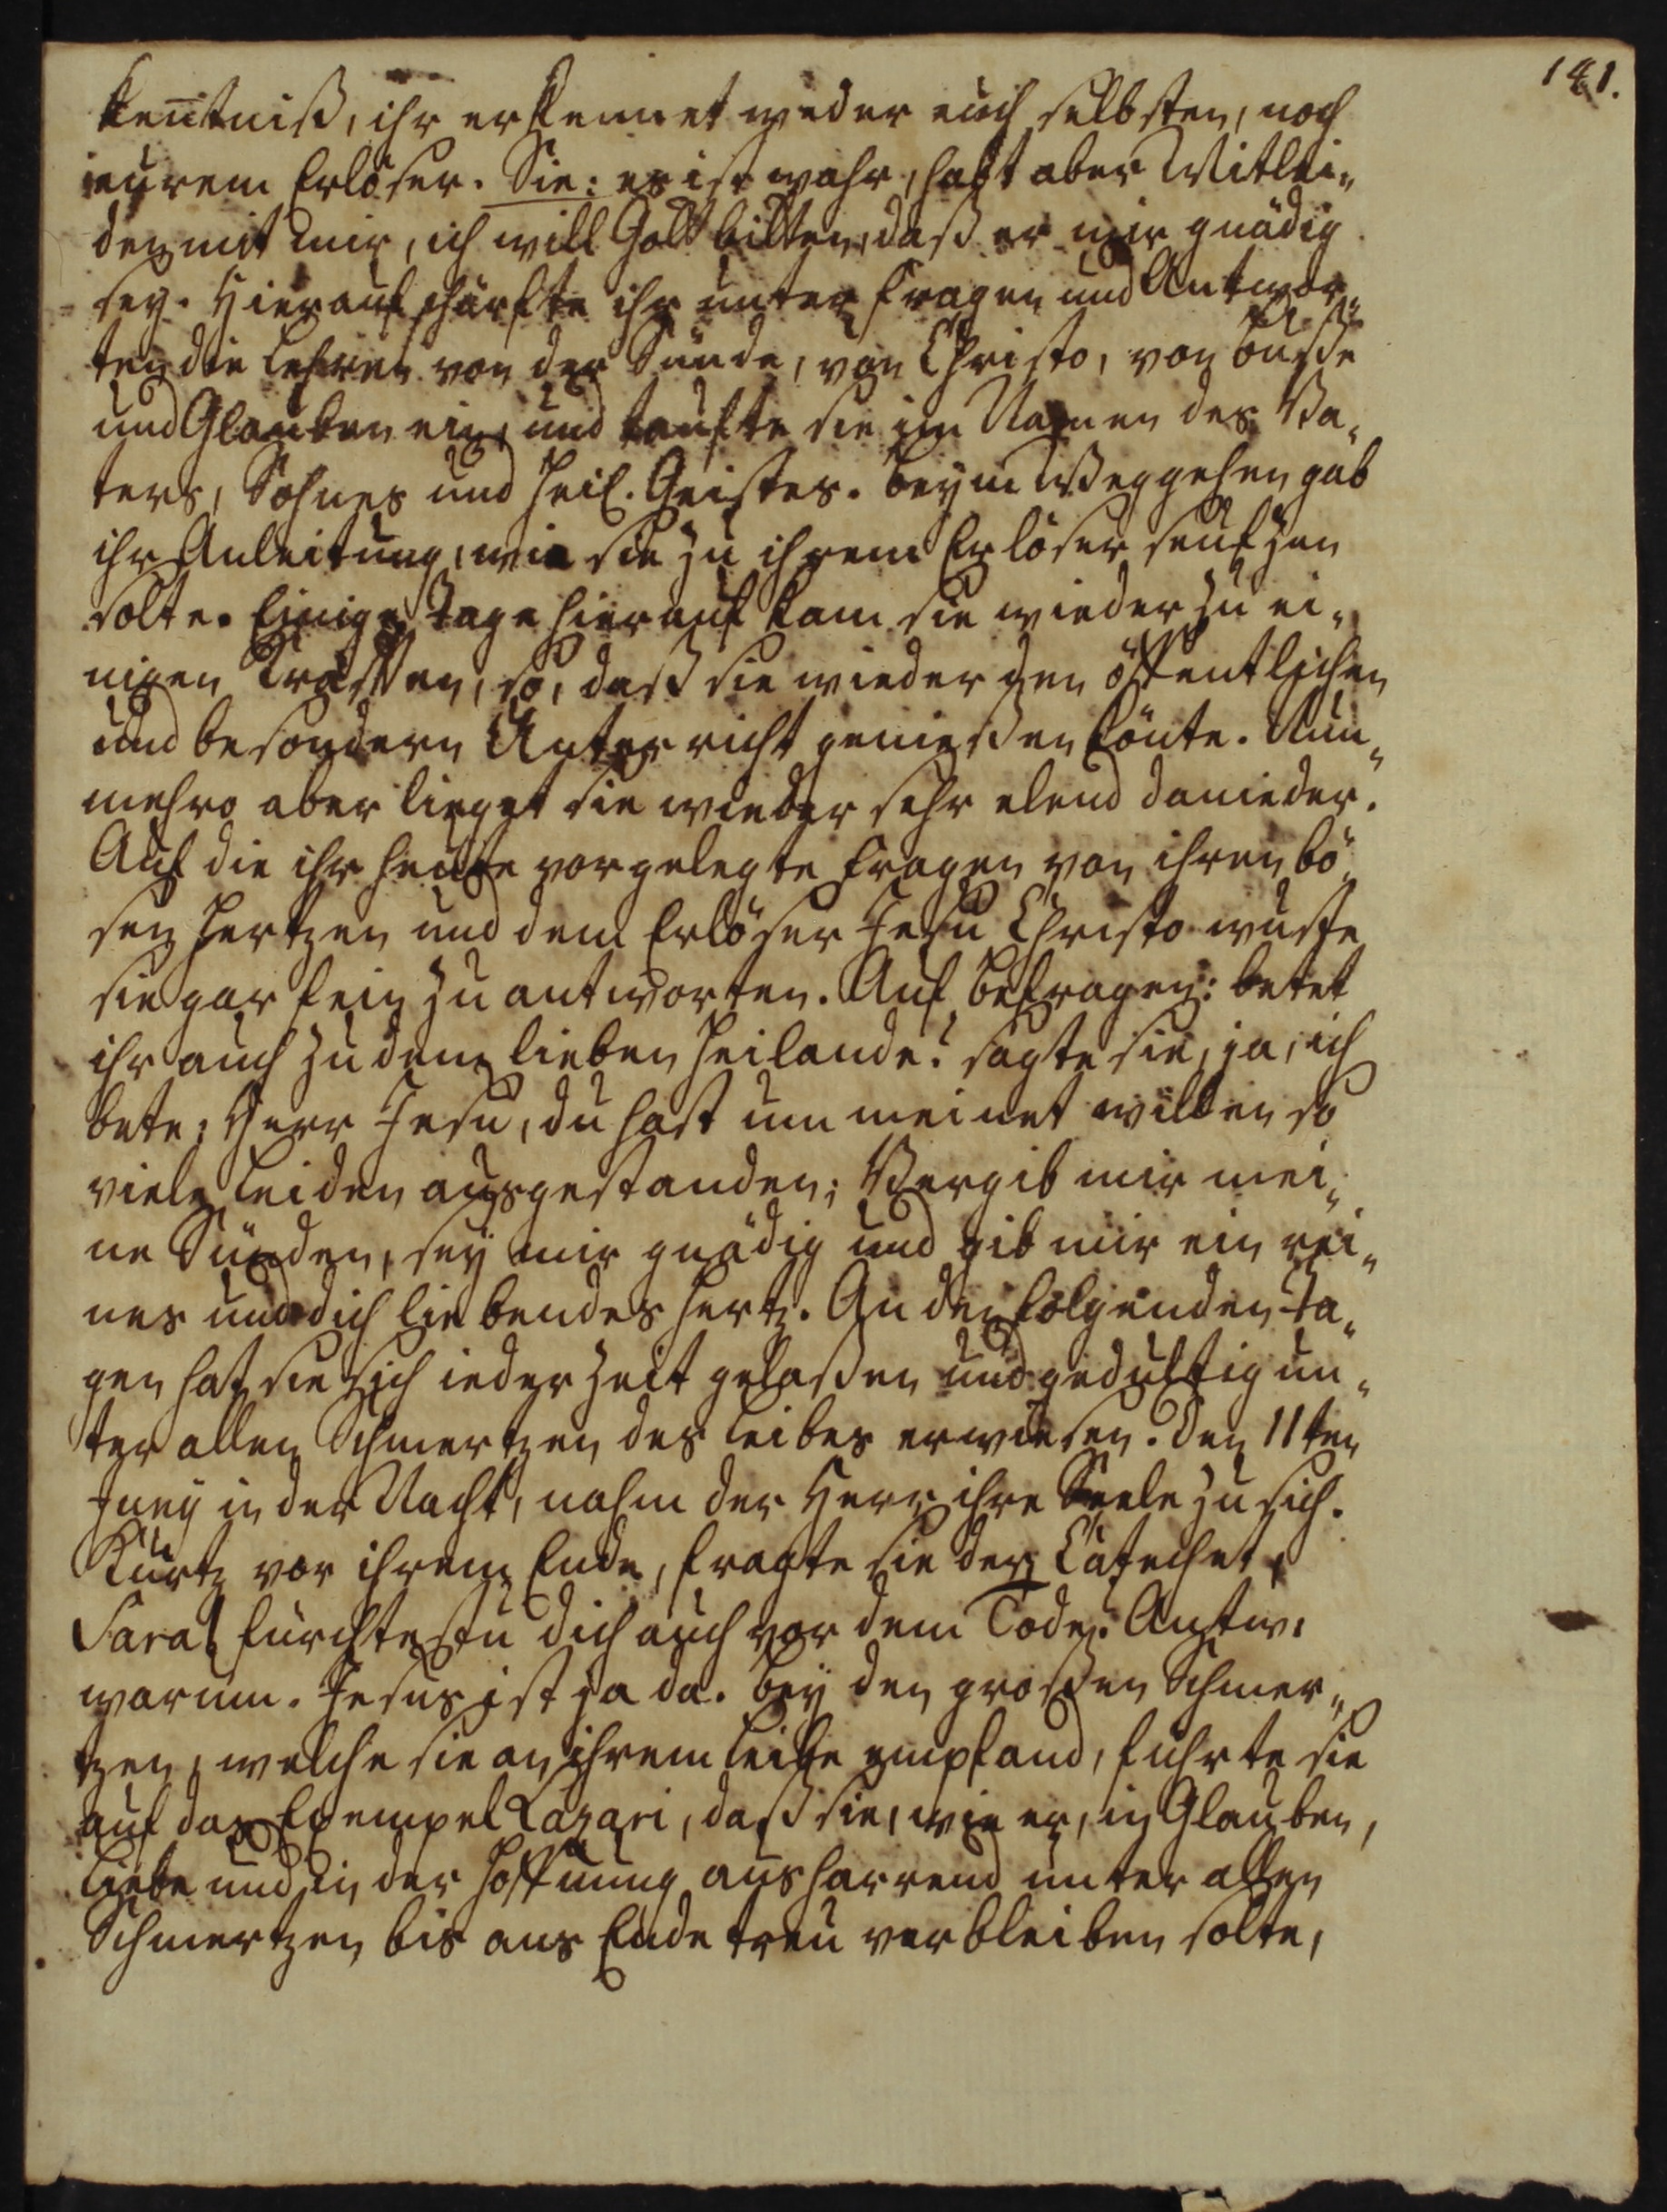 181.
kentniß, ihr erkennet weder euch selbsten, noch
eurem Erlöser. Sie: es ist wahr, habt aber Mitlei„
den mit mir, ich will Gott bitten, daß er mir gnädig
sey. Hierauf schärfte ihr unter Fragen und Antwor„
ten die Lehren von der Sünde, von Christo, von Buße
und Glauben ein, und taufte sie im Namen des Va„
ters, Sohnes und Heil. Geistes. Beym Weggehen gab
ihr Anleitung, wie sie zu ihrem Erlöser seufzen
solte. Einige Tage hierauf kam sie wieder zu ei„
nigen Kräften, so, daß sie wieder den öffentlichen
und besondern Unterricht genießen konte. Nun„
mehro aber lieget sie wieder sehr elend danieder.
Auf die ihr heute vorgelegte Fragen von ihren bö„
sen Hertzen und dem Erlöser Jesu Christo wuste
sie gar fein zu antworten. Auf Befragen: betet
ihr auch zu dem lieben Heilande? sagte sie, ja, ich
bete: Herr Jesu, du hast um meinet willen so
viele Leiden ausgestanden; Vergib mir mei„
ne Sünden, sey mir gnädig und gib mir ein rei„
nes und dich liebendes Hertz. An den folgenden Ta„
gen hat sie sich ieder Zeit gelaßen und gedultig un„
ter allen Schmertzen des Leibes erwiesen. Den 11ten
Juny in der Nacht, nahm der Herr ihre Seele zu sich.
Kurtz vor ihrem Ende, fragte sie der Catechet:
Sara! fürchtestu dich auch vor dem Tode? Antw:
warum. Jesus ist ja da. Bey den großen Schmer„
tzen, welche sie an ihrem Leibe empfand, führte sie
auf das Exempel Lazari, daß sie, wie er, in Glauben,
Liebe und in der Hoffnung ausharrend unter allen
Schmertzen bis ans Ende treu verbleiben solte,